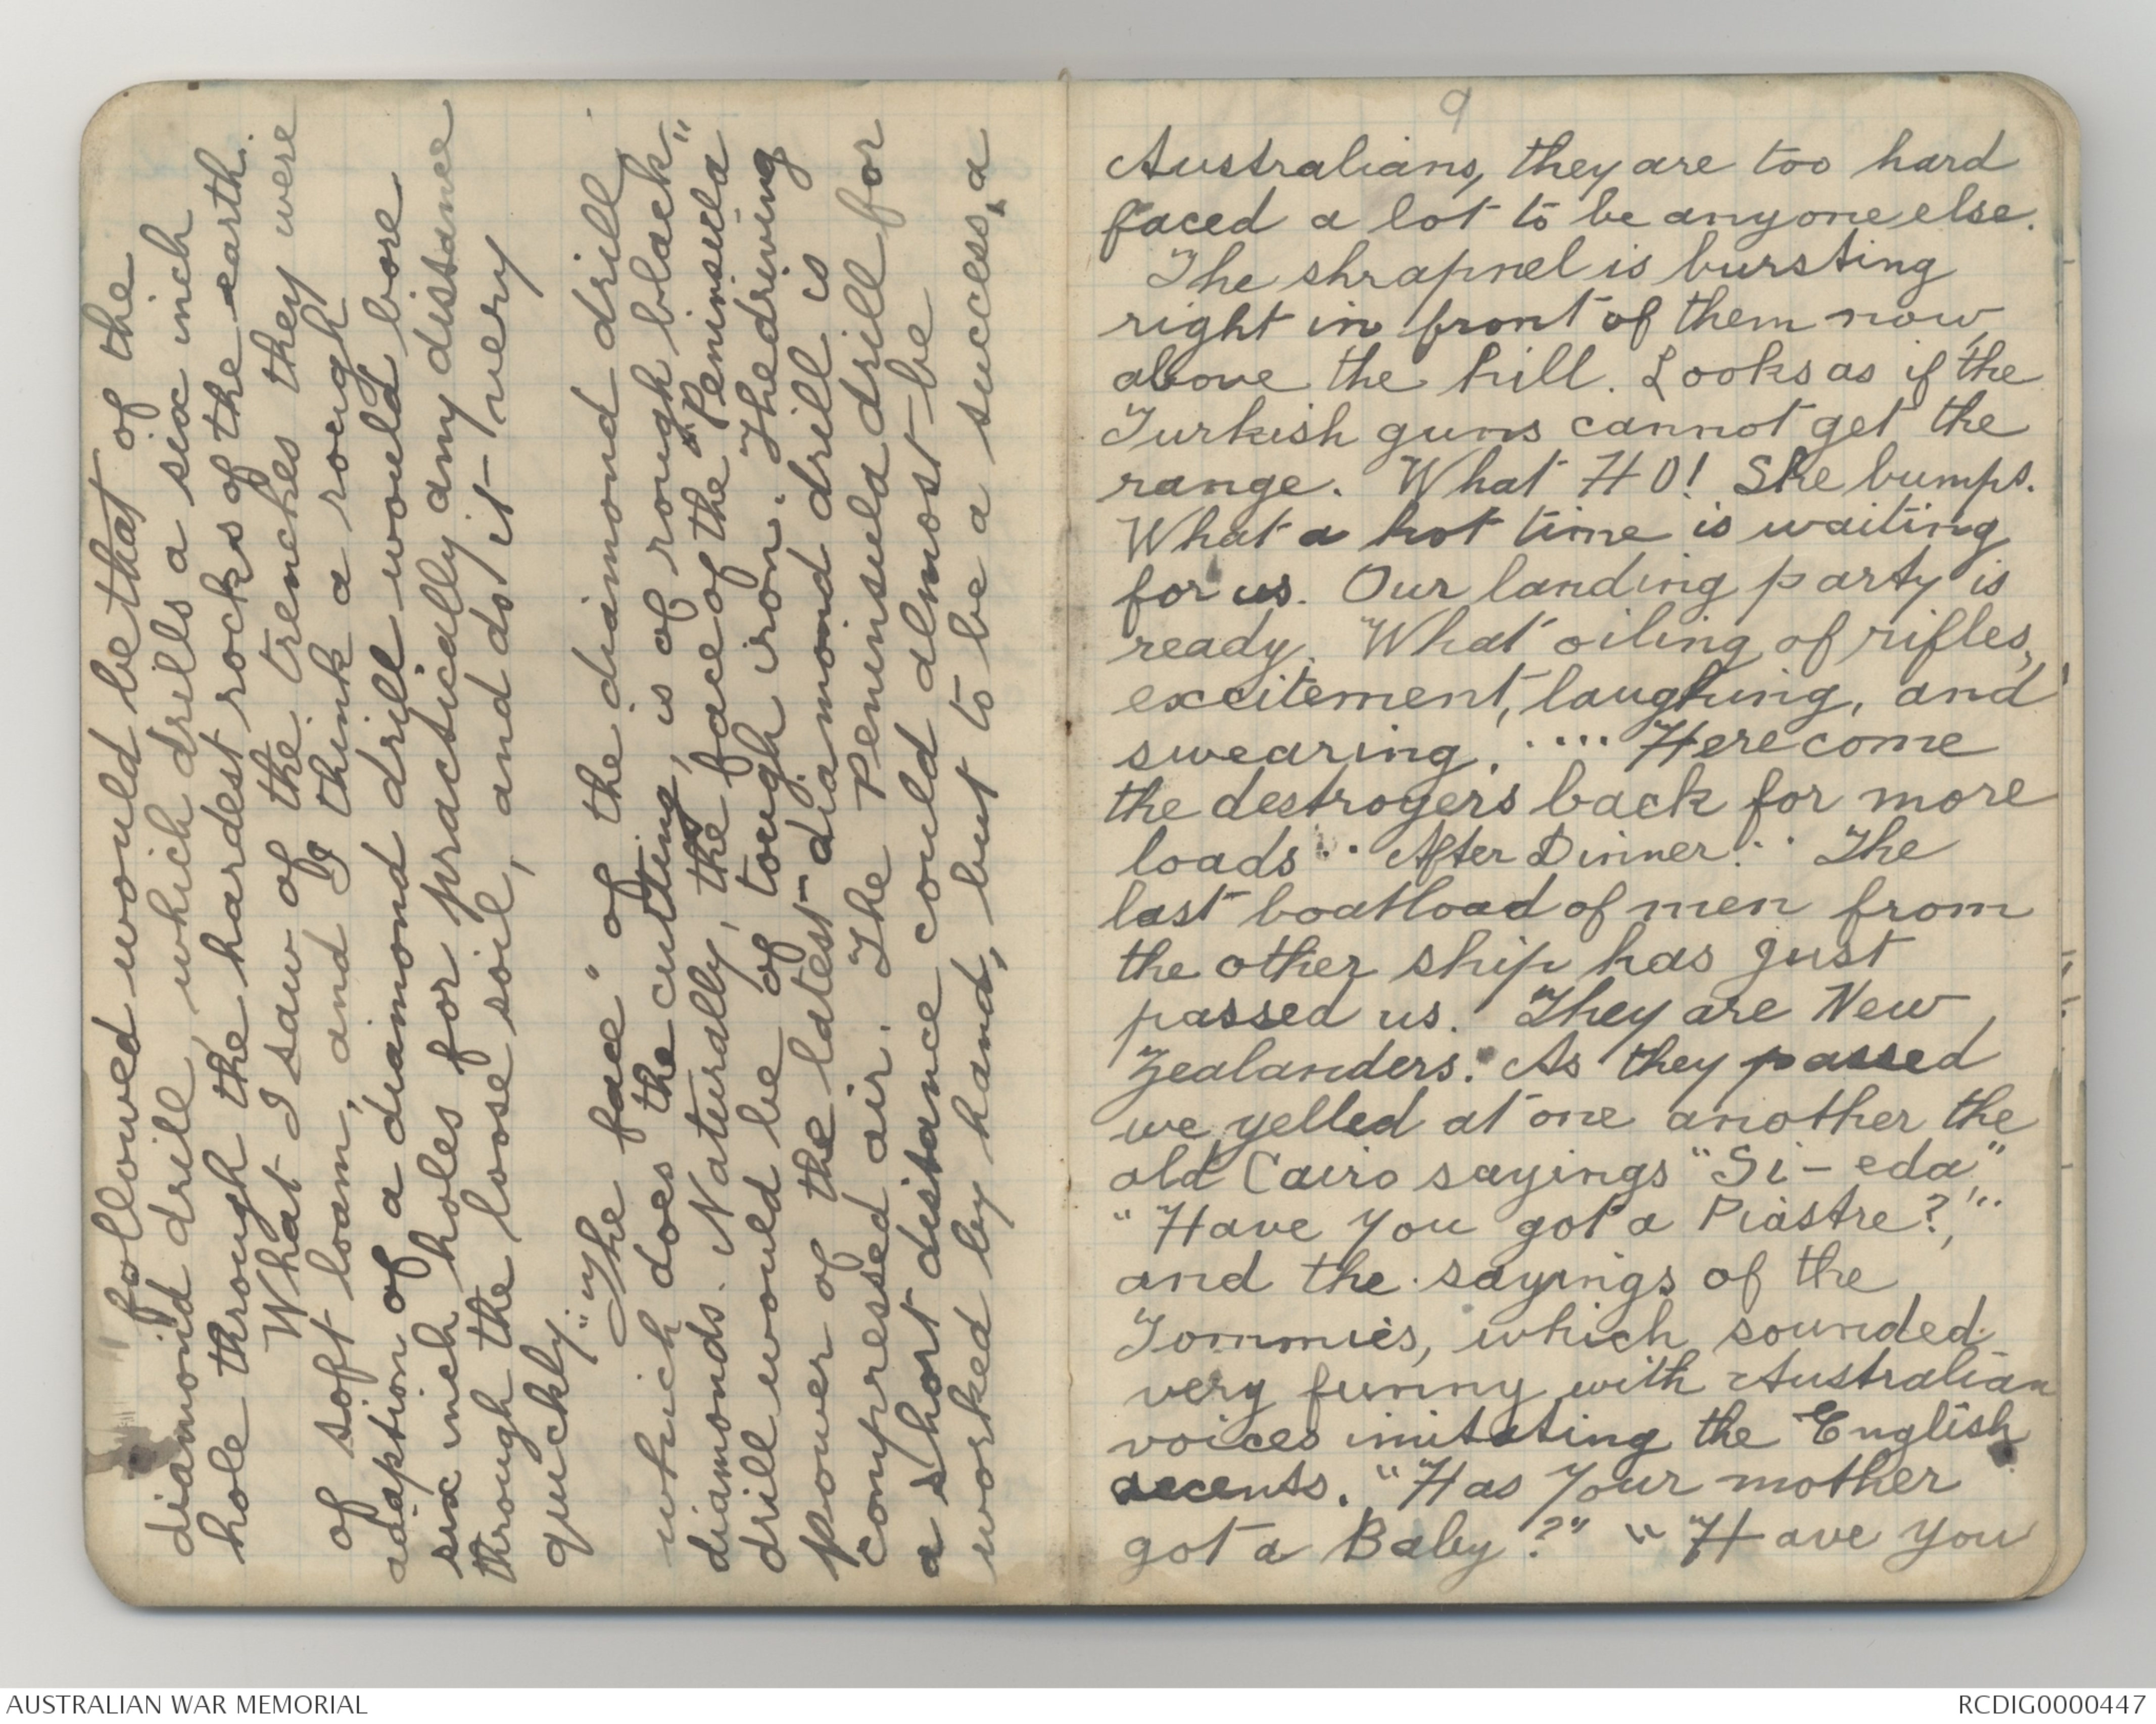 followed would be that of the
diamond drill, which drills a six inch
hole through the hardest rocks of the earth.
What I saw of the trenches they were
of soft loam, and I think a rough
adaption of a diamond drill would bore
six inch holes for practically any distance
through the loose soil, and do it very
quickly.
"The face" of the diamond drill
which does the cutting, is of rough black"
diamonds. Naturally, the face of the "Peninsula
drill would be of tough iron. The driving
power of the latest diamond drill is
compressed air. The Peninsula drill for
a short distance could almost be
worked by hand, but to be a success, a
9
Australians, they are too hard
faced a lot to be anyone else.
The shrapnel is bursting
right in front of them now,
above the hill. Looks as if the
Turkish guns cannot get the
range. What HO! She bumps.
What a hot time is waiting
for us. Our landing party is
ready. What oiling of rifles,
excitement, laughing, and
swearing. .... Here come
the destroyers back for more
loads .. After Dinner. .. The
last boatload of men from
the other ship has just
passed us. They are New
Zealanders. As they passed
we yelled at one another the
old Cairo sayings "Si-eda",
"Have you got a Piastre?",
and the sayings of the
Tommies, which sounded
very funny with Australian
voices imitating the English
accents. "Has your mother
got a Baby?" "Have you
AUSTRALIAN WAR MEMORIAL
RCDIG0000447